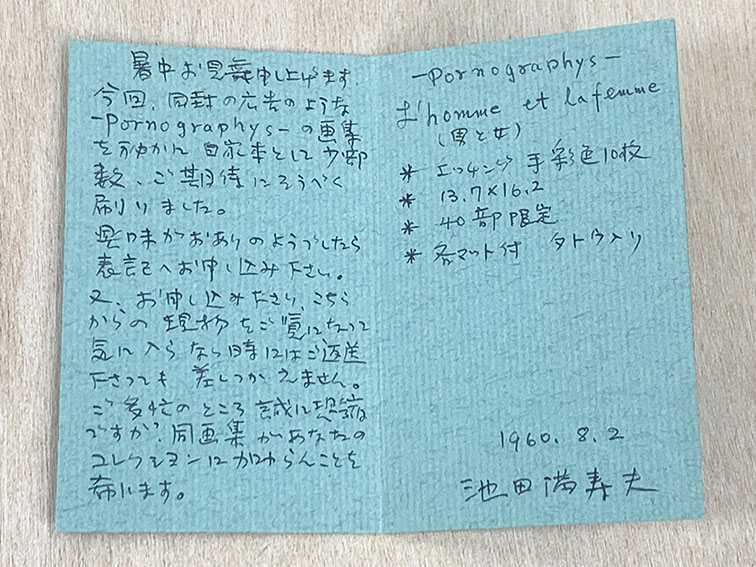 暑中お見舞申し上げます。
今回、同封の広告のような
-Pornographys-の画集
を密かに自家本として少部
数、ご期待にそうべく
刷りました。
興味がおありのようでしたら
表記へお申し込み下さい。
又、お申し込み下さり、こちら
からの現物をご覧になって
気に入らない時にはご返送
下さっても差しつかえません。
ご多忙のところ誠に恐縮
ですが、同画集があなたの
コレクションに加わらんことを
祈ります。
-Pornographys-
L'homme et la femme
(男と女)
* エッチング 手彩色10枚
* 13.7×16.2
* 40部限定
* 各マット付 タトウ入り
1960.8.2
池田満寿夫